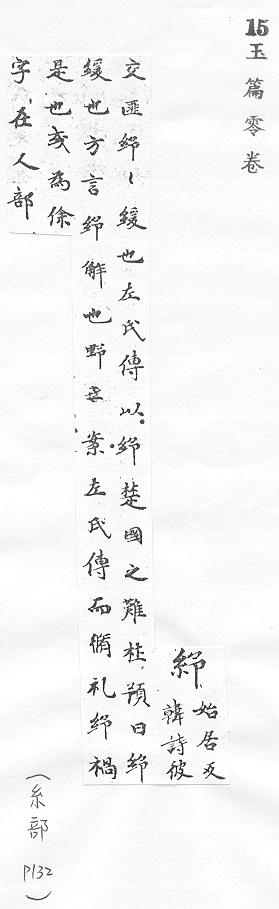 15玉篇零卷
紓
始居反
韓詩彼
交匪紓〻緩也左氏傳以紓楚國之難杜預曰紓
緩也方言紓解也野王案左氏傳而脩礼紓禍
是也或為俆
字在人部
(糸部 P132)